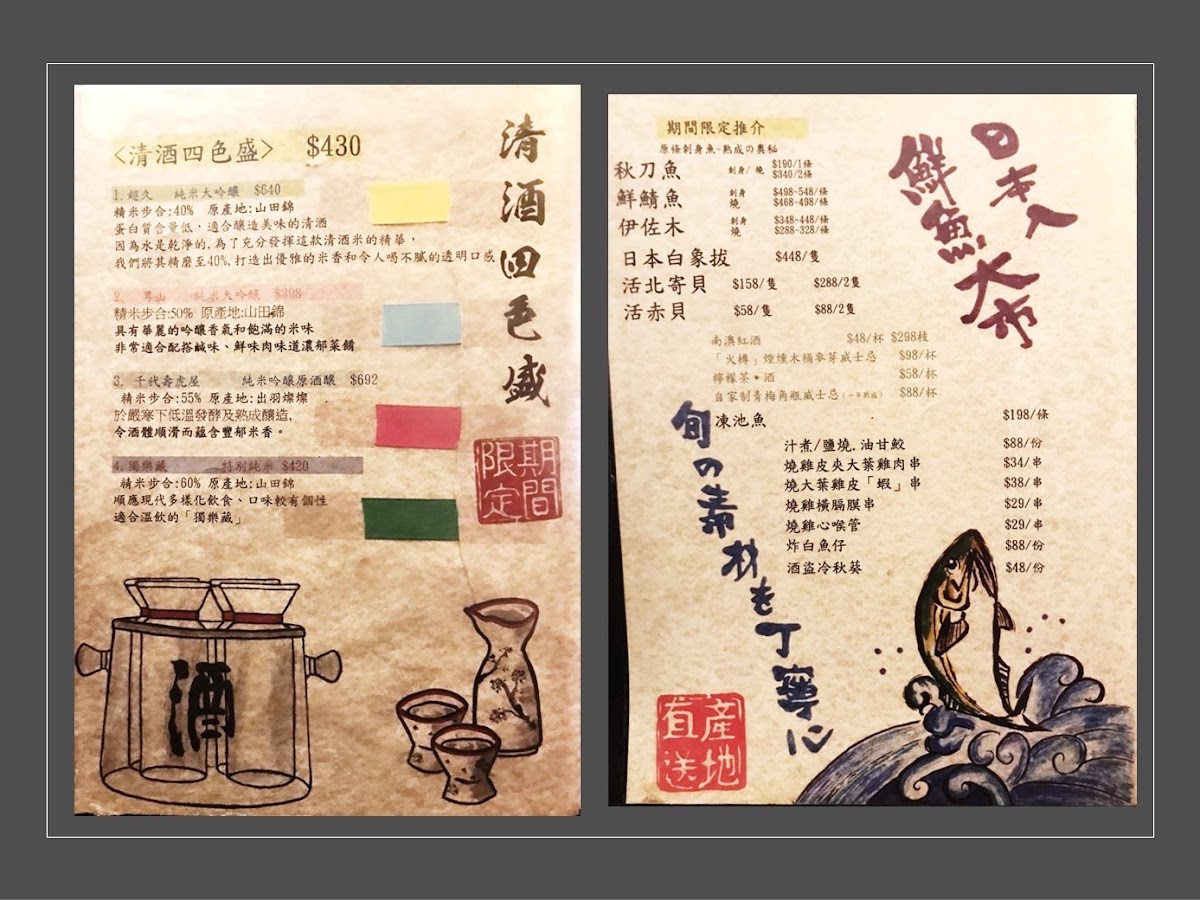 清酒四色盛
<清酒四色盛> $430
1.超久 純米大吟釀 $640
精米步合:40% 原產地:山田錦
蛋白質含量低,適合釀造美味的清酒
因為水是乾淨的,為了充分發揮這款清酒米的精華,
我們將其精磨至40%,打造出優雅的米香和令人喝不膩的透明口感
2. 男山 純米大吟釀 $398
精米步合:50% 原產地:山田錦
具有華麗的吟釀香氣和飽滿的米味
非常適合配搭鹹味、鮮味肉味道濃郁菜餚
3. 千代壽虎屋 純米吟釀原酒釀 $692
精米步合:55% 原產地:出羽燦燦
於嚴寒下低溫發酵及熟成釀造,
令酒體順滑而蘊含豐郁米香。
4.獨樂藏 特別純米 $420
精米步合:60% 原產地:山田錦
順應現代多樣化飲食、口味較有個性
適合溫飲的「獨樂藏」
期間
限定
酒
日本入
鮮魚大市
期間限定推介
原條刺身魚~熟成の奧秘
秋刀魚 刺身/燒 $190/1條
$340/2條
鮮鯖魚 刺身 $498-548/條
燒 $468-498/條
伊佐木 刺身 $348-448/條
燒 $288-328/條
日本白象拔 $448/隻
活北寄貝 $158/隻 $288/2隻
活赤貝 $58/隻 $88/2隻
南澳紅酒 $48/杯 $298枝
「火樽」煙燻木桶麥芽威士忌 $98/杯
檸檬茶・酒 $58/杯
自家制青梅角瓶威士忌(一年熟成) $88/杯
凍池魚 $198/條
汁煮/鹽燒.油甘鮫 $88/份
燒雞皮夾大葉雞肉串 $34/串
燒大葉雞皮「蝦」串 $38/串
燒雞橫膈膜串 $29/串
燒雞心喉管 $29/串
炸白魚仔 $88/份
酒盜冷秋葵 $48/份
旬の素材を丁寧に
產地
直送